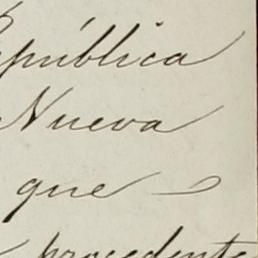 República
Nueva
que
procedente